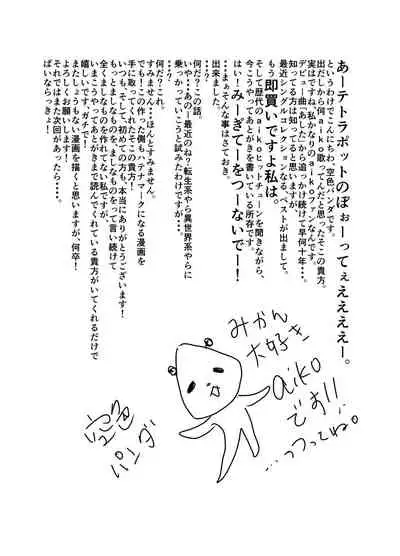 あーテトラポットのぼぉーってぇえええー。
というわけでこんにちわ、空色パンダです。
出だしから何aiko歌ってんだと思ったそこの貴方。
実はですね、私かなりのaikoファンなんです。
デビュー曲「あした」から追いかけ続けて早何十年・・・。
知ってる方は知ってると思いますが、
最近シングルコレクションなる、ベストが出ましてね。
もう即買いですよ私は。
そして歴代のaikoヒットチューンを聞きながら、
今こうやってあとがきを書いている所存です。
はい！みーぎてーをつーないでー！
・・・まぁそんな事はさておき、
出来ました。
・・・？
何だ？この話。
いや・・・あのー最近のね？転生系やら異世界系やらに
乗っかっていこうと試みたわけですが
・・・？
何だ？これ。
すみません・・・ほんとすみません・・・。
でも！この作品の側がバックになる漫画を
手に取ってくれたそこの貴方！
いつも、そして、初めての方も、本当にありがとうございます！
もっとましなものをまともなものをって言い続けて
全くましなものを作れてない私ですが、
いまこうやってあとがきまで読んでくれている貴方がいてくれるだけで
嬉しいです。ガチで！
またしょうもない漫画を描くと思いますが、何卒！
よろしくお願いします！
それではまた次回があったら・・・。
ばいならっきょ！
みかん
大好き
aiko
です!!
…つってね。
空色
パンダ